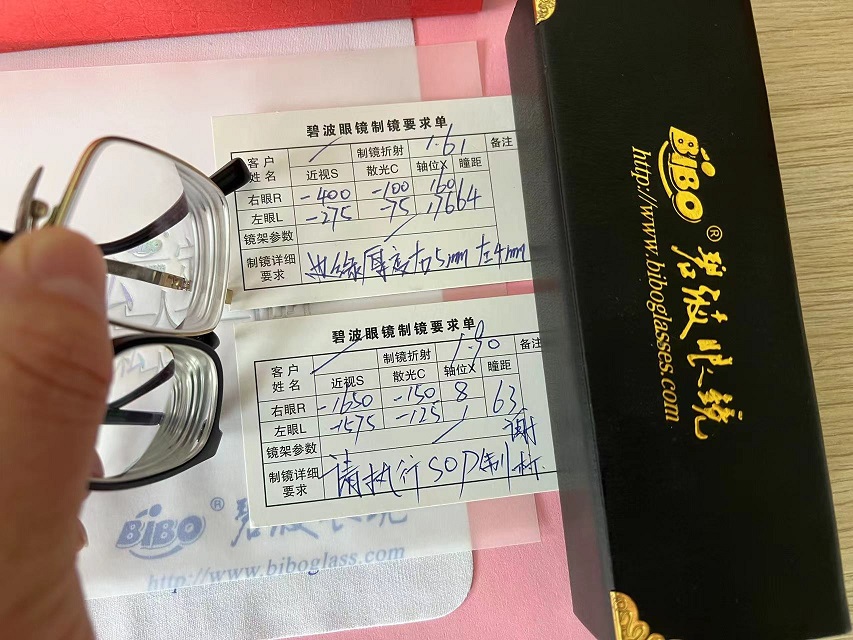 碧波眼镜制镜要求单
客户姓名 近视S 制镜折射 散光C 1.61 轴位X 瞳距 备注
右眼R -400 -100 160 64
左眼L -275 -75 176
镜架参数
制镜详细要求 边缘厚度右5mm 左4mm
碧波眼镜制镜要求单
客户姓名 近视S 制镜折射 散光C 1.90 轴位X 瞳距 备注
右眼R -1650 -150 8 63
左眼L -1575 -125
镜架参数 谢
制镜详细要求 请执行SOP制
BiBO® 碧波眼镜
http://www.biboglass.com
BiBO® 碧波眼镜
http://www.biboglasses.com